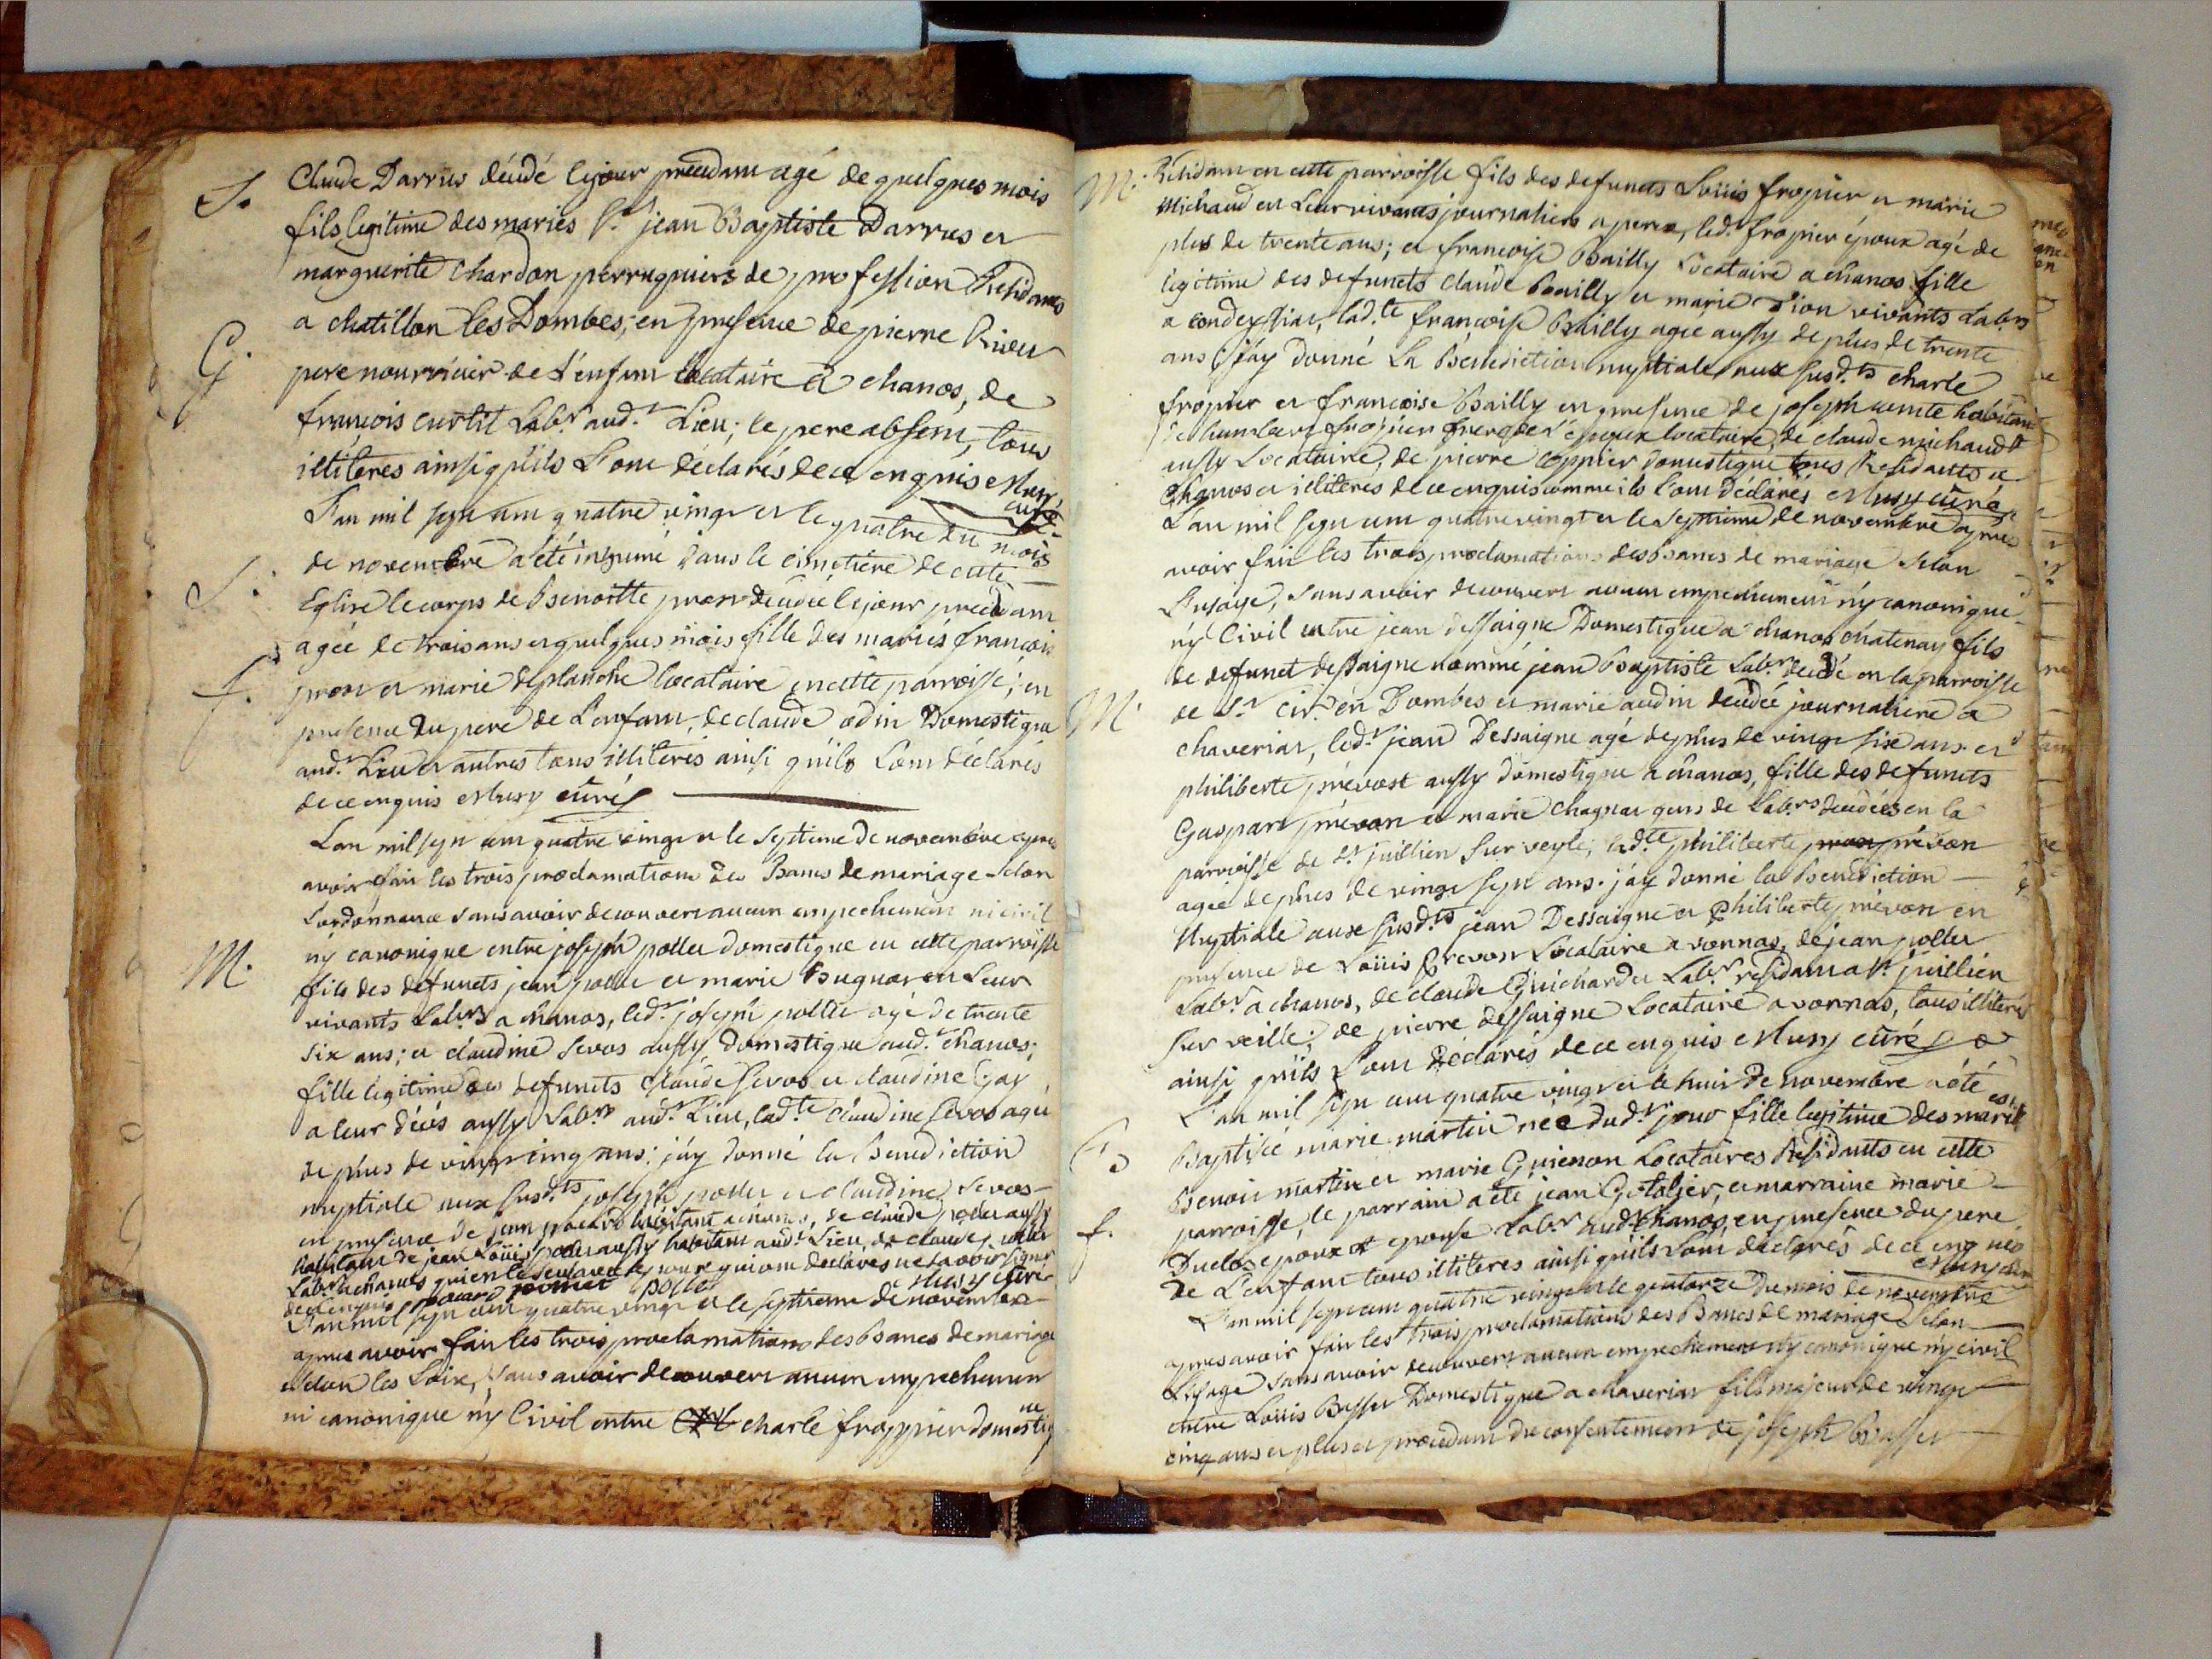 S. Claude Darrus décédé le jour precedant agé de quelques mois
fils legitime des mariés Sr. jean Baptiste Darrus et
marguerite Chardon perruquiers de profession Residants
a chatillon les Dombes; en presence de pierre
G. pere nourricier de l'enfant locataire a chanos, de
françois curtil Labr. aud.t Lieu; le pere absent, tous
illiteres ainsi qu'ils L'ont déclarés de ce enquis
curé
L'an mil sept cent quatre vingt et le quatre du mois
de novembre a été inhumé dans le cimetiere de cette
S. Eglise le corps de Benoitte décédée le jour precedant
agée de trois ans et quelques mois fille des mariés françois
f. et marie deplanche locataire en cette parroisse; en
presence du pere de L'enfant, de claude odin Domestique
aud.t Lieu et autres tous illiteres ainsi qu'ils L'ont déclarés
de ce enquis curé
L'an mil sept cent quatre vingt et le septieme de novembre apres
avoir fait les trois proclamations des Bancs de mariage selon
L'ordonnance sans avoir decouvert aucun empechement ni civil
M. ny canonique entre joseph pollet domestique en cette parroisse
fils des defunts jean pollet et marie Buguet en Leur
vivants Labrs a chanos, led.t joseph pollet agé de trente
six ans; et claudine Sevos aussy domestique aud.t chanos;
fille legitime des defunts claude Sevos et claudine Gay
a leur décés aussy Labrs aud.t Lieu, lad.te claudine Sevos agée
de plus de vingt cinq ans; j'ay donné la Benediction
nuptiale aux susd.ts joseph pollet et claudine Sevos
en presence de jean habitant a chanos, de claude pollet aussy
habitant de jean Loüis pollet aussy habitant aud.t Lieu, de claude pollet
Labr. a chanos
de ce enquis curé
L'an mil sept cent quatre vingt et le septieme de novembre
apres avoir fait les trois proclamations des Bancs de mariage
selon les Loix, sans avoir decouvert aucun empechement
ni canonique ny Civil entre charle froppier domestique
M. Residant en cette parroisse fils des defunts Loüis fropier et marie
Michaud en Leur vivants journaliers a perex, led.t fropier époux agé de
plus de trente ans; et françoise Bailly Locataire a chanos fille
legitime des defunts claude Bailly et marie Dion vivants Labrs
a condeyssiat, lad.te françoise Bailly agée aussy de plus de trente
ans j'ay donné La Benediction nuptiale aux susd.ts charle
fropier et françoise Bailly en presence de joseph comte habitant
de humbert fropier frere de l'epoux locataire, de claude michaud
aussy Locataire, de pierre coppier domestique tous Residants a
chanos et illiteres de ce enquis comme ils L'ont déclarés curé
L'an mil sept cent quatre vingt et le septieme de novembre apres
avoir fait les trois proclamations des Bancs de mariage selon
L'usage, sans avoir decouvert aucun empechement ny canonique
ny Civil entre jean dessaigne Domestique a chanos chatenay fils
de defunct dessaigne nommé jean Baptiste Labr. décédé en la parroisse
M. de St. Cir. en Dombes et marie audin décédée journaliere a
chaveriat, led.t jean Dessaigne agé de plus de vingt six ans et
philiberte prevost aussy domestique a chanos, fille des defunts
Gaspart prevost et marie chagnat gens de Labrs décédés en la
parroisse de St. juillien sur veyle, lad.te philiberte prevost
agée de plus de vingt sept ans. j'ay donné la Benediction
Nuptiale aux susd.ts jean Dessaigne et philiberte prevost en
presence de Loüis prevost Locataire a vonnas, de jean pollet
Labr. a chanos, de claude Guichardet Labr. residant a St. juillien
sur veille; de pierre dessaigne Locataire a vonnas, tous illiteres
ainsi qu'ils L'ont déclarés de ce enquis curé
L'an mil sept cent quatre vingt et le huit de novembre a été
B. Baptisée marie martin née dud.t jour fille legitime des mariés
Benoit martin et marie Guienon Locataires Residants en cette
parroisse, le parrain a été jean et marraine marie
f. Duclos epoux et epouse Labr. aud.t chanos, en presence du pere
de L'enfant tous illiteres ainsi qu'ils L'ont déclarés de ce enquis
L'an mil sept cent quatre vingt et le quatorze du mois de novembre
apres avoir fait les trois proclamations des Bancs de mariage selon
L'usage sans avoir decouvert aucun empechement ny canonique ny civil
entre Loüis Domestique a chaveriat fils majeur de vingt
cinq ans et plus et procedant du consentement de joseph